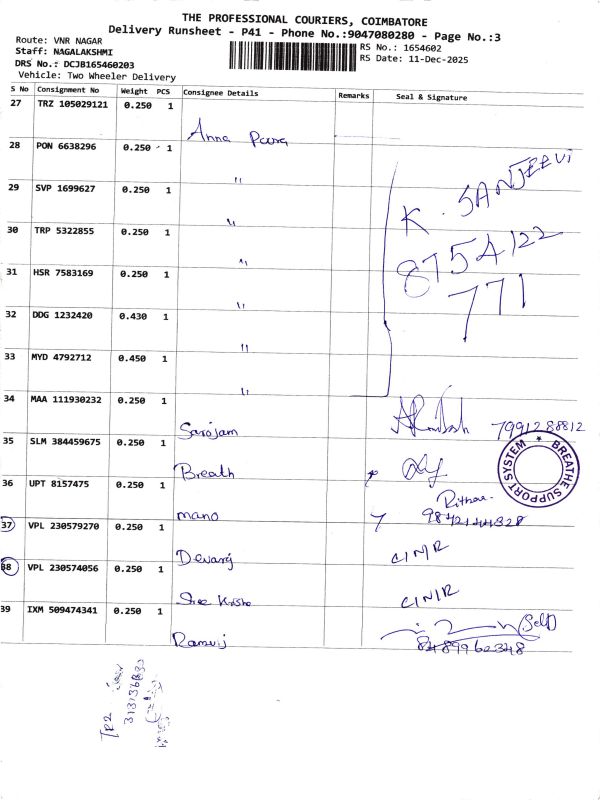 THE PROFESSIONAL COURIERS, COIMBATORE
Delivery Runsheet - P41 - Phone No.:9047080280 - Page No.:3
Route: VNR NAGAR
Staff: NAGALAKSHMI
DRS No.: DCJB165460203
Vehicle: Two Wheeler Delivery
RS No.: 1654602
RS Date: 11-Dec-2025
S No Consignment No Weight PCS Consignee Details Remarks Seal & Signature
27 TRZ 105029121 0.250 1
Anna
28 PON 6638296 0.250 1
"
29 SVP 1699627 0.250 1
"
30 TRP 5322855 0.250 1
"
31 HSR 7583169 0.250 1
"
32 DDG 1232420 0.430 1
"
33 MYD 4792712 0.450 1
"
K. SANJEEVI
8754122
771
34 MAA 111930232 0.250 1
Sarojam
7991288812
35 SLM 384459675 0.250 1
Breath
BREATHE SUPPORT SYSTEM
36 UPT 8157475 0.250 1
mano
37 VPL 230579270 0.250 1
Devaraj C/N/R
38 VPL 230574056 0.250 1
Sree Krishna C/N/R
39 IXM 509474341 0.250 1
Ramuij
(Self)
8489962348
TRZ